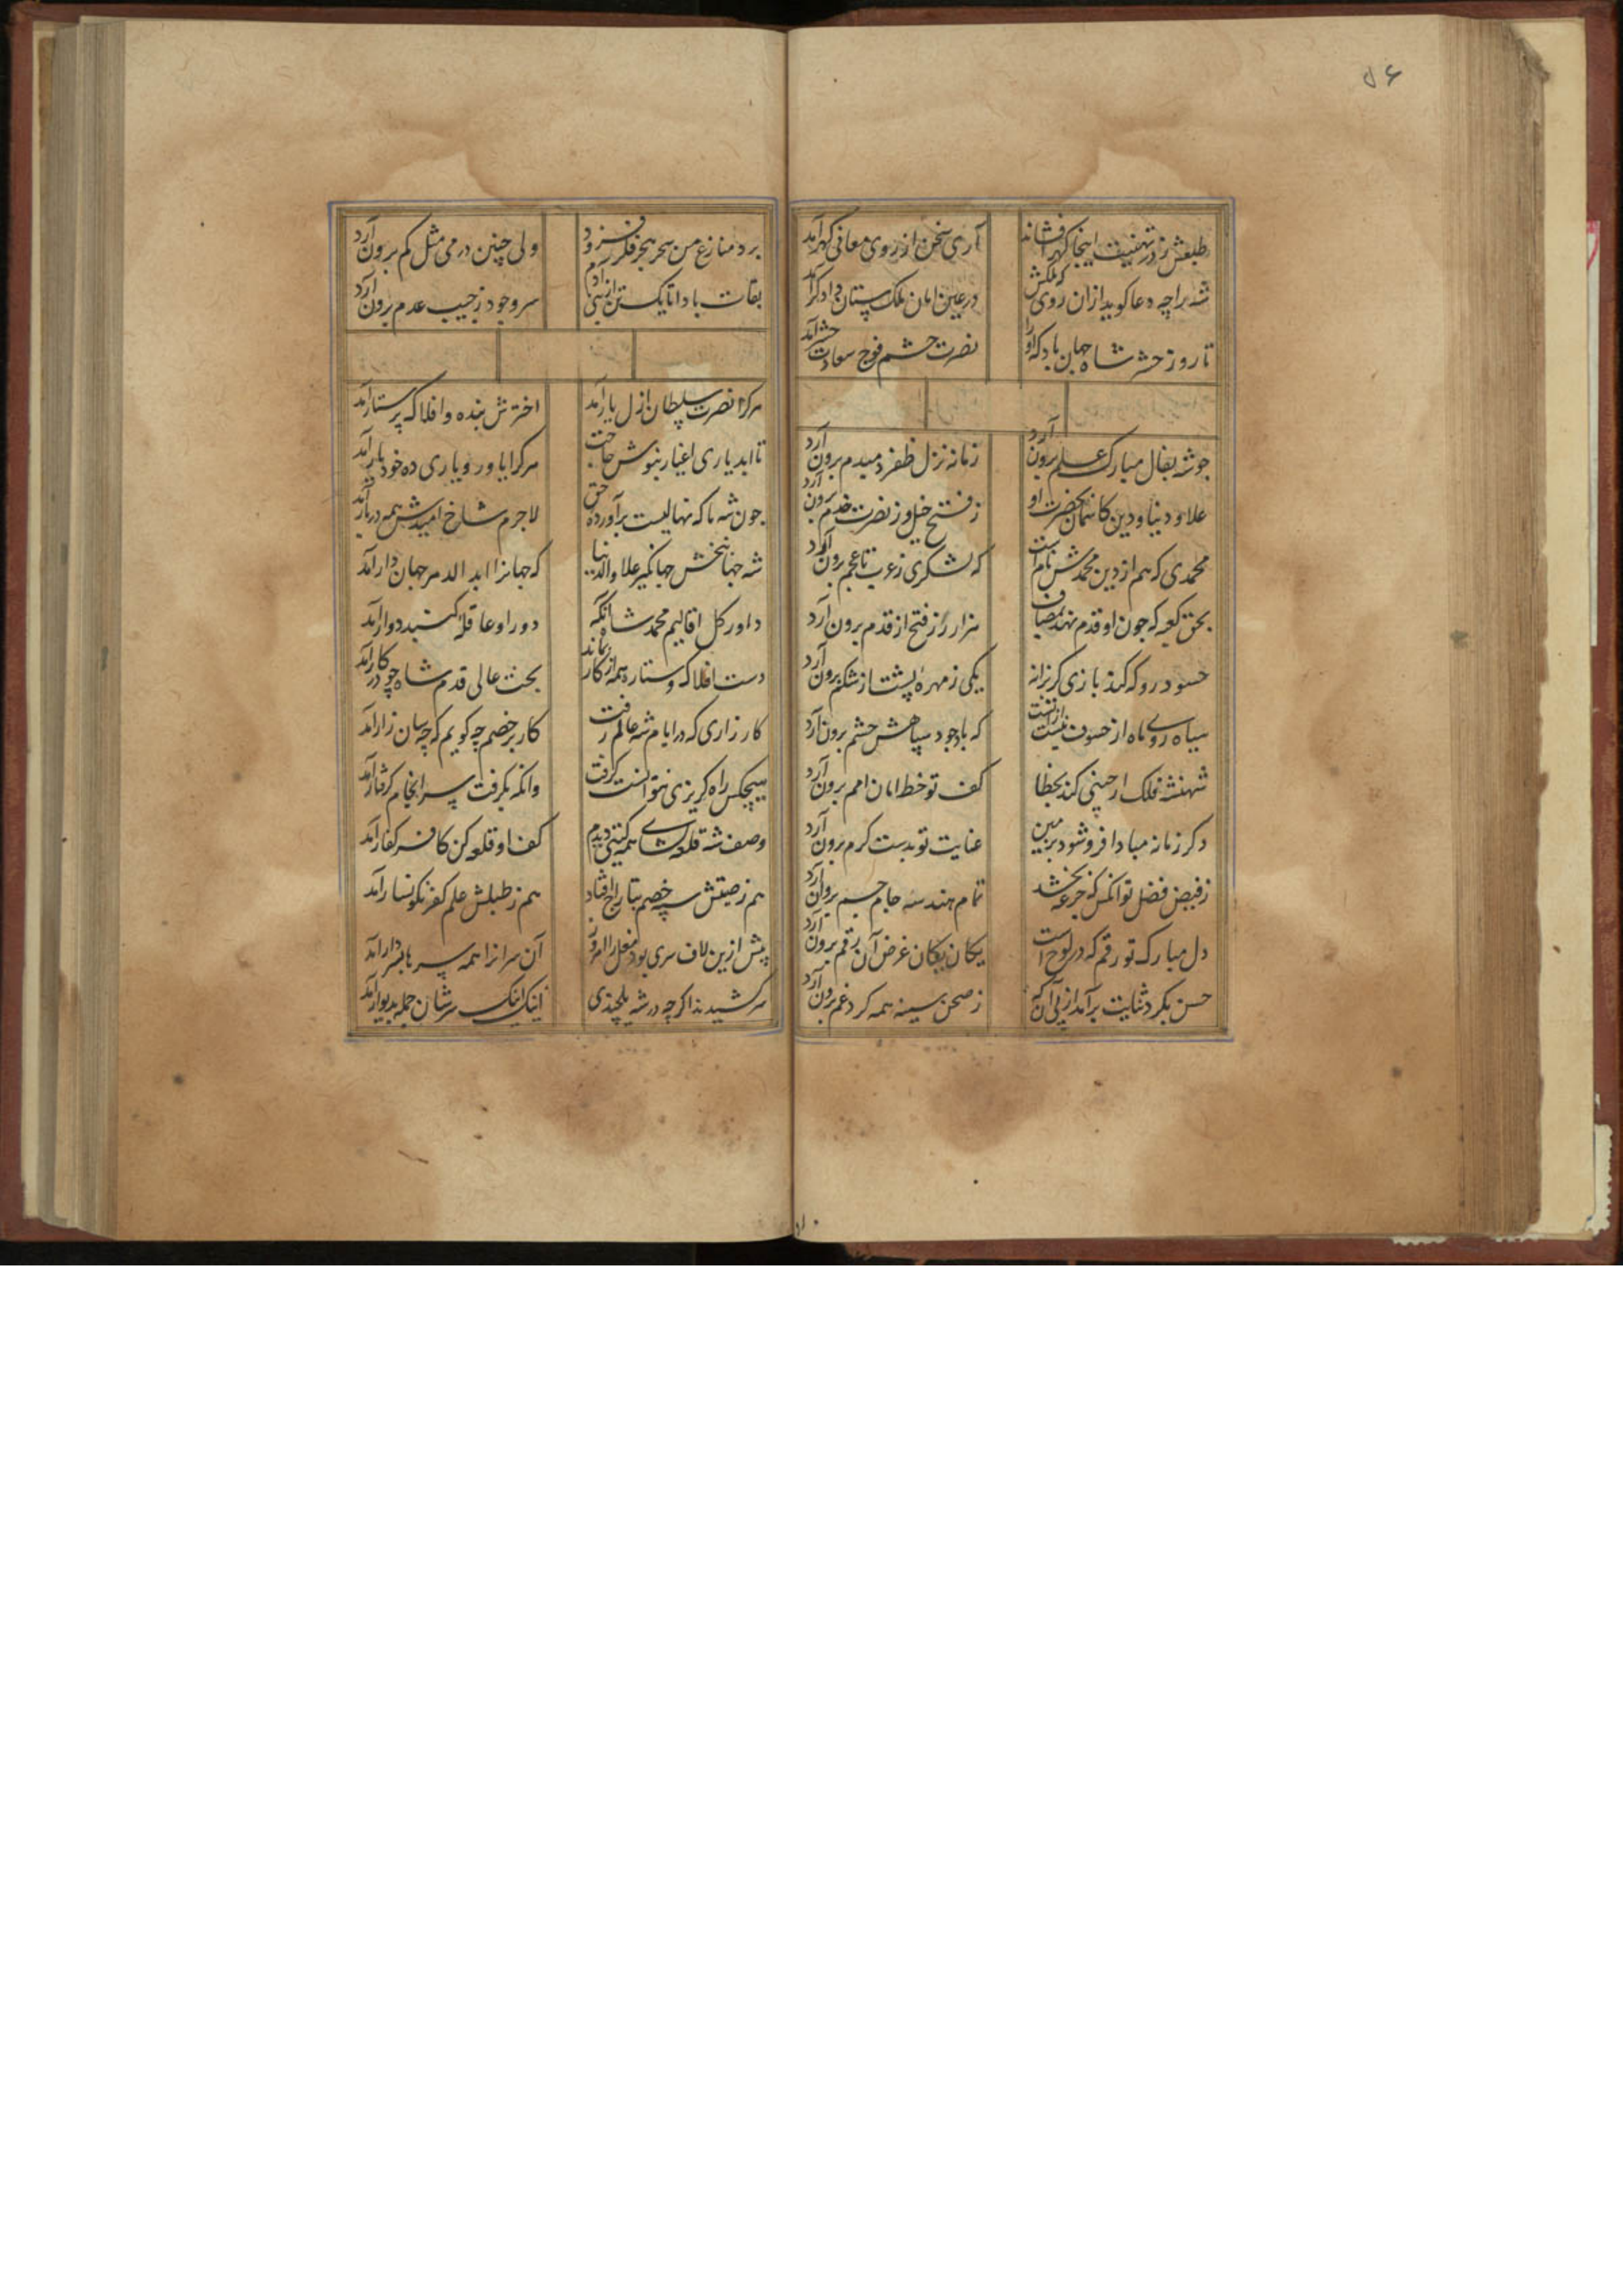 ۵۶
طبعش ز در تهنیت اینجا گهر افشاند آری سخن از روی معانی گهر آمد
شه را چه دعا گوید ازان روی که ملکش در عین امان ملک ستان دادگر آمد
تا روز حشر شاه جهان باد که او را نصرت حشم فوج سعادت حشر آمد
چو شه بفال مبارک علم برون آرد زمانه نزل ظفر دمبدم برون آرد
علاء دنیا و دین کاسمان بحضرت او ز فتح خیل و ز نصرت خدم برون آرد
محمدی که هم از دین محمدش نام است که لشکری ز عرب تا عجم برون آرد
بحق کعبه که چون او قدم نهد بمصاف هزار رز فتح از قدم برون آرد
حسود رو که کند بازی گریزانه یکی ز مهره پشت از شکم برون آرد
سیاه روی ماه از خسوف نیست از آنست که باوجود سپاهش حشم برون آرد
شهنشه فلک ار جنبی کند بخطا کف تو خط امان امم برون آرد
دگر زمانه مبادا فرو شود بزمین عنایت تو بدست کرم برون آرد
ز فیض فضل تو آنکس که جرعه بخشد تمام هندسه جام جم برون آرد
دل مبارک تو رقم که در لوح است یکان یکان غرض آن رقم برون آرد
حسن بگرد ثنایت برآمد از پی آن که ز صحن سینه همه گرد غم برون آرد
برد منازع من سحر بجز فکر فزود ولی چنین درمی مثل کم برون آرد
بقات بادا تا یک تن از بنی آدم سر وجود ز جیب عدم برون آرد
هر کرا نصرت سلطان ازل یار آمد اخترش بنده و افلاک پرستار آمد
تا ابد یاری اغیار نبوش حاجت هر کرا یاور و یاری ده خود یار آمد
چون شه ما که نهالیست برآورده حق لاجرم شاخ امیدش همه در بار آمد
شه جهانبخش جهانگیر علاء والدنیا که جهانرا ابد الدهر جهان دار آمد
داور کل اقالیم محمد شه آنکه دور او عاقله گنبد دوار آمد
دست افلاک و ستاره همه از کار بماند بخت عالی قدم شاه چو در کار آمد
کارزاری که در ایام شه عالم رفت کار بر خصم چه گویم که چه سان زار آمد
هیچکس راه گریزی نتوانست گرفت وانکه بگرفت سرانجام گرفتار آمد
وصف شه قلعه گشای همه گیتی دیدم کف او قلعه کن کافر کفار آمد
هم ز صیتش سپه خصم بتاراج افتاد هم ز طبلش علم کفر نگونسار آمد
پیش ازین لاف سری بود مغل را امروز آن سرانرا همه سر با فسار آمد
سر کشیدند اگر چه در شه یلچندی اینک اینک سرشان جمله بدیوار آمد